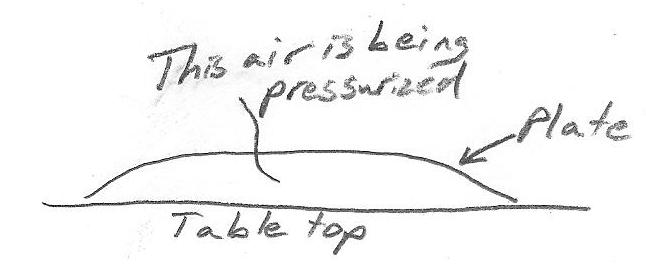 This air is being
pressurized
Plate
Table top